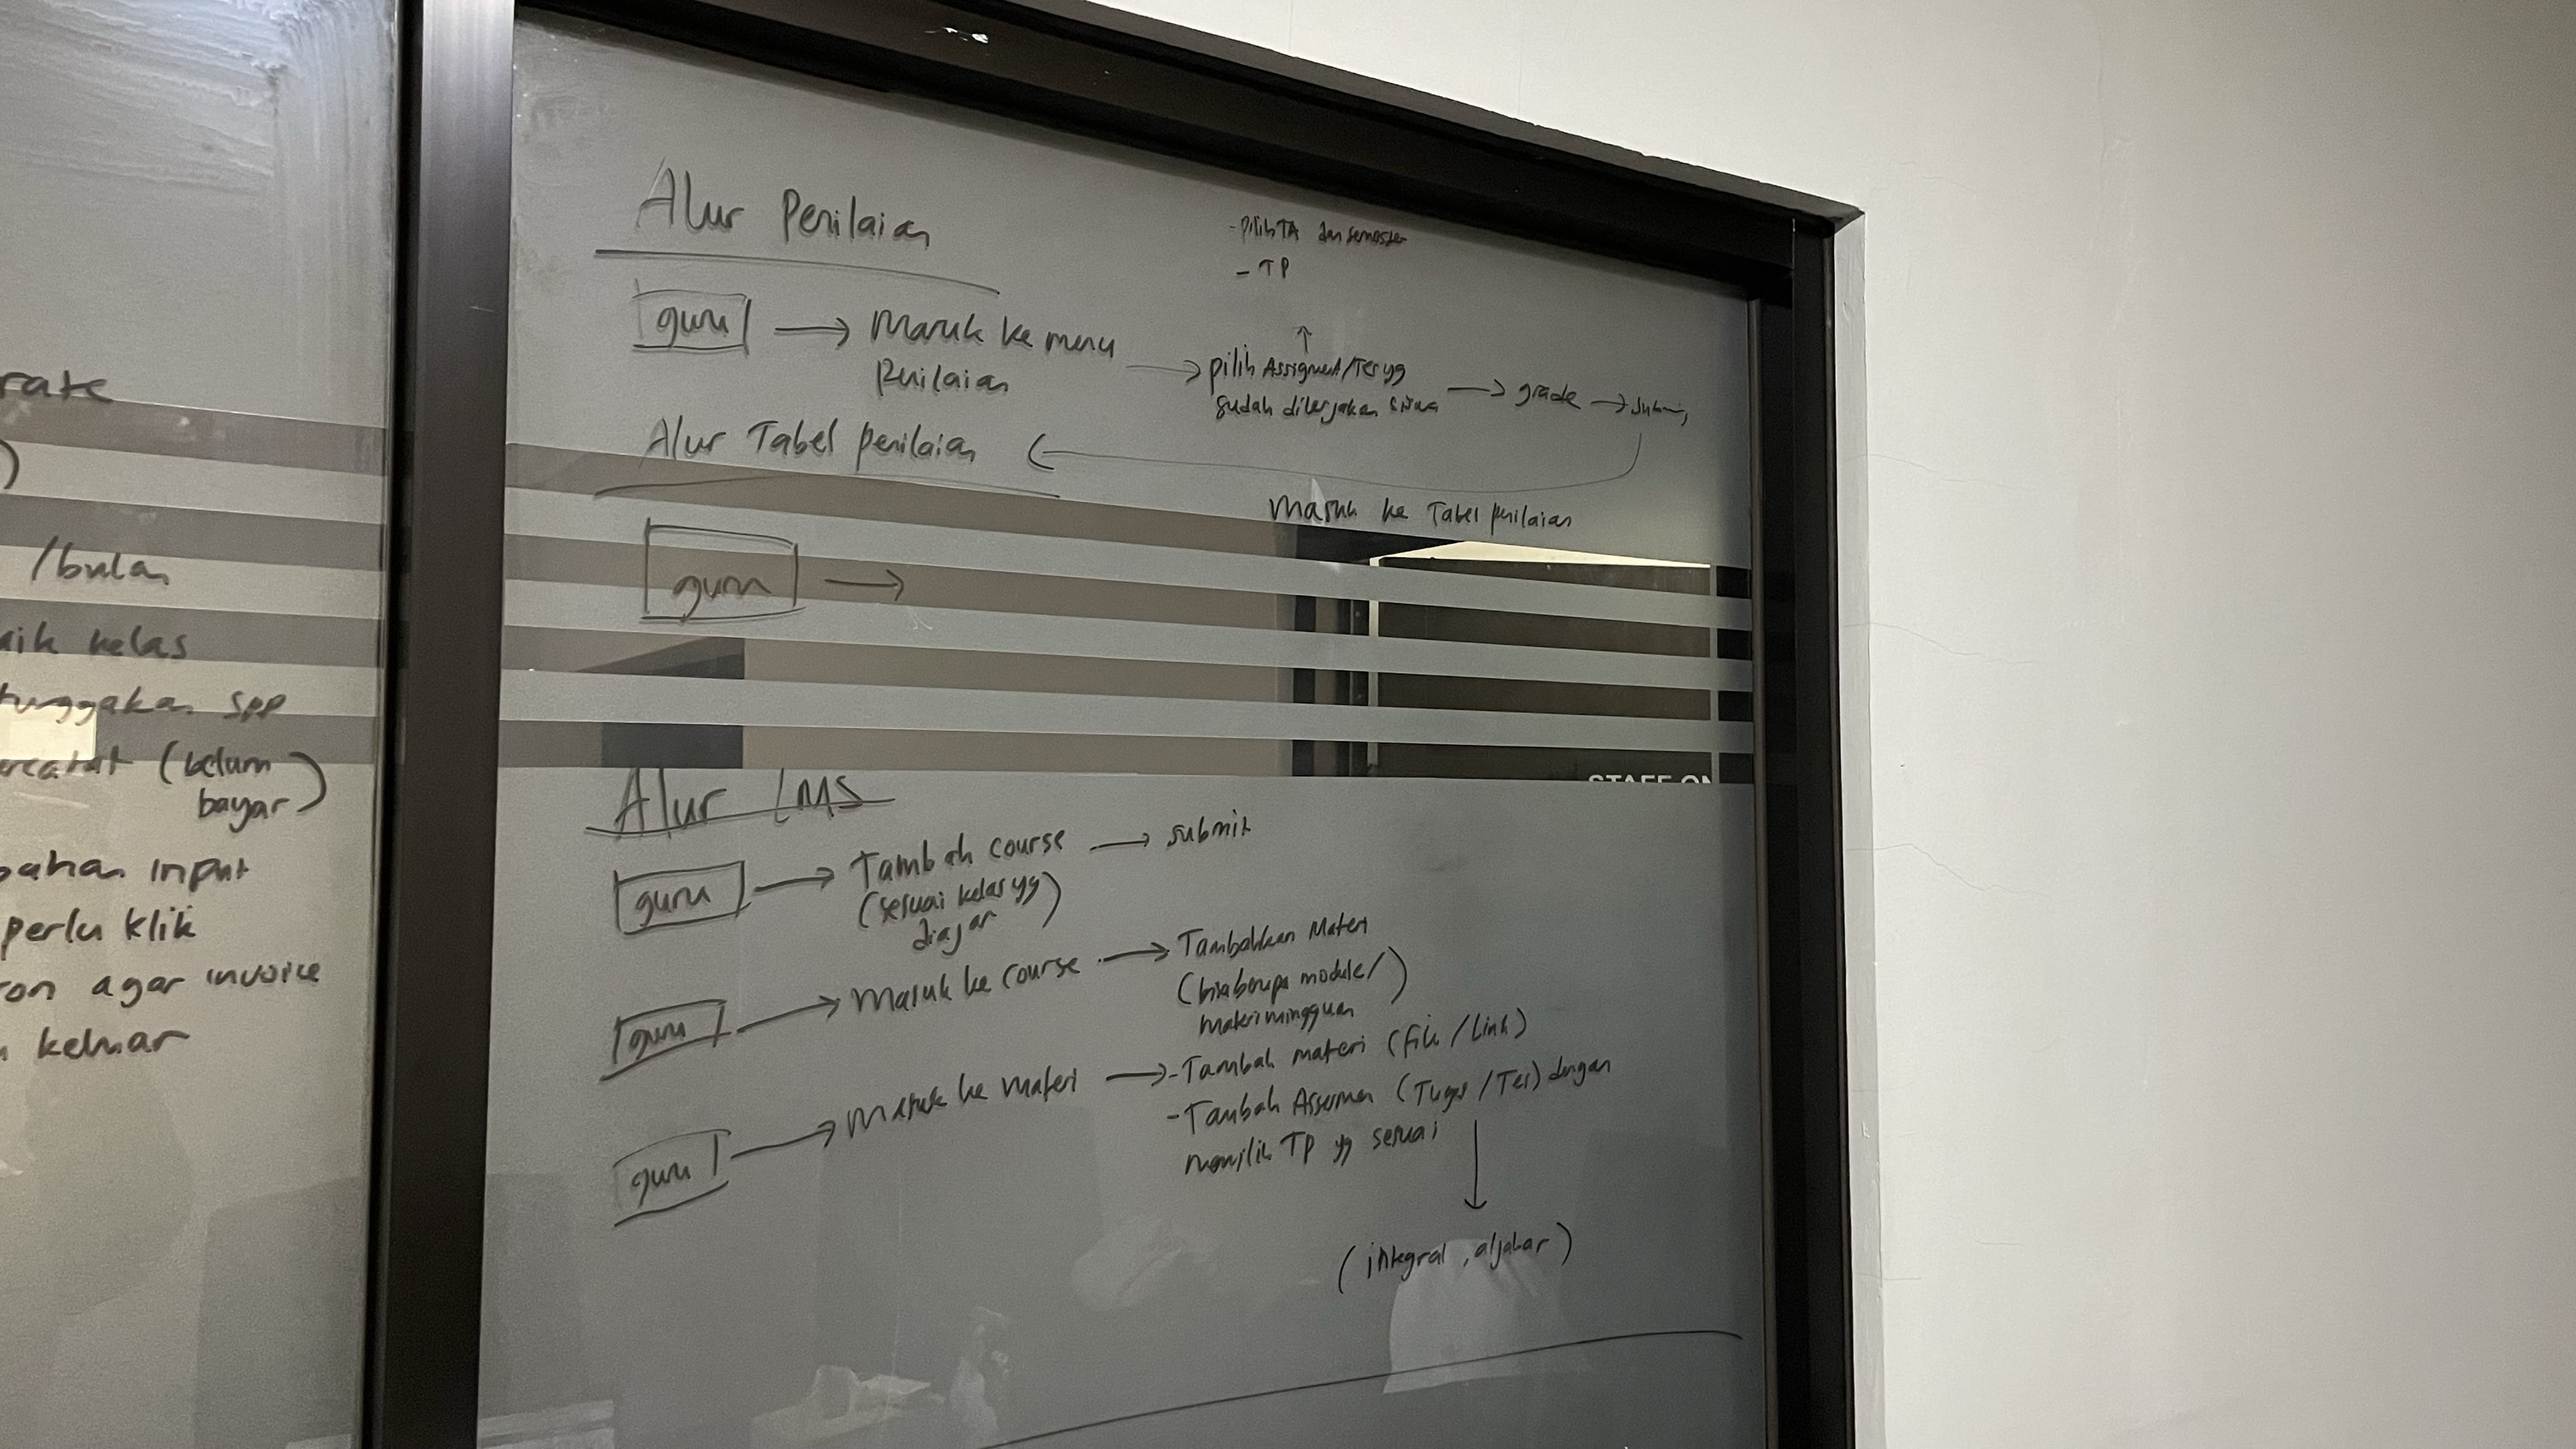 rate
)
/bulan
aik kelas
tunggakan SPP
(belum
bayar)
bahan input
perlu klik
on agar invoice
keluar
Alur Penilaian
- pilih TA dan semester
- TP
guru → Masuk ke menu
Penilaian
→ pilih Assigment/Tes yg
sudah dikerjakan siswa
→ grade → submit
Alur Tabel penilaian
Masuk ke Tabel penilaian
guru →
STAFF ON
Alur LMS
guru → Tambah course → submit
(sesuai kelas yg
diajar)
guru → Masuk ke course → Tambahkan Materi
(bisa berupa module/
materi mingguan)
guru → Masuk ke Materi → - Tambah materi (file/Link)
- Tambah Assesmen (Tugas/Tes) dengan
memilih TP yg sesuai
(integral, aljabar)